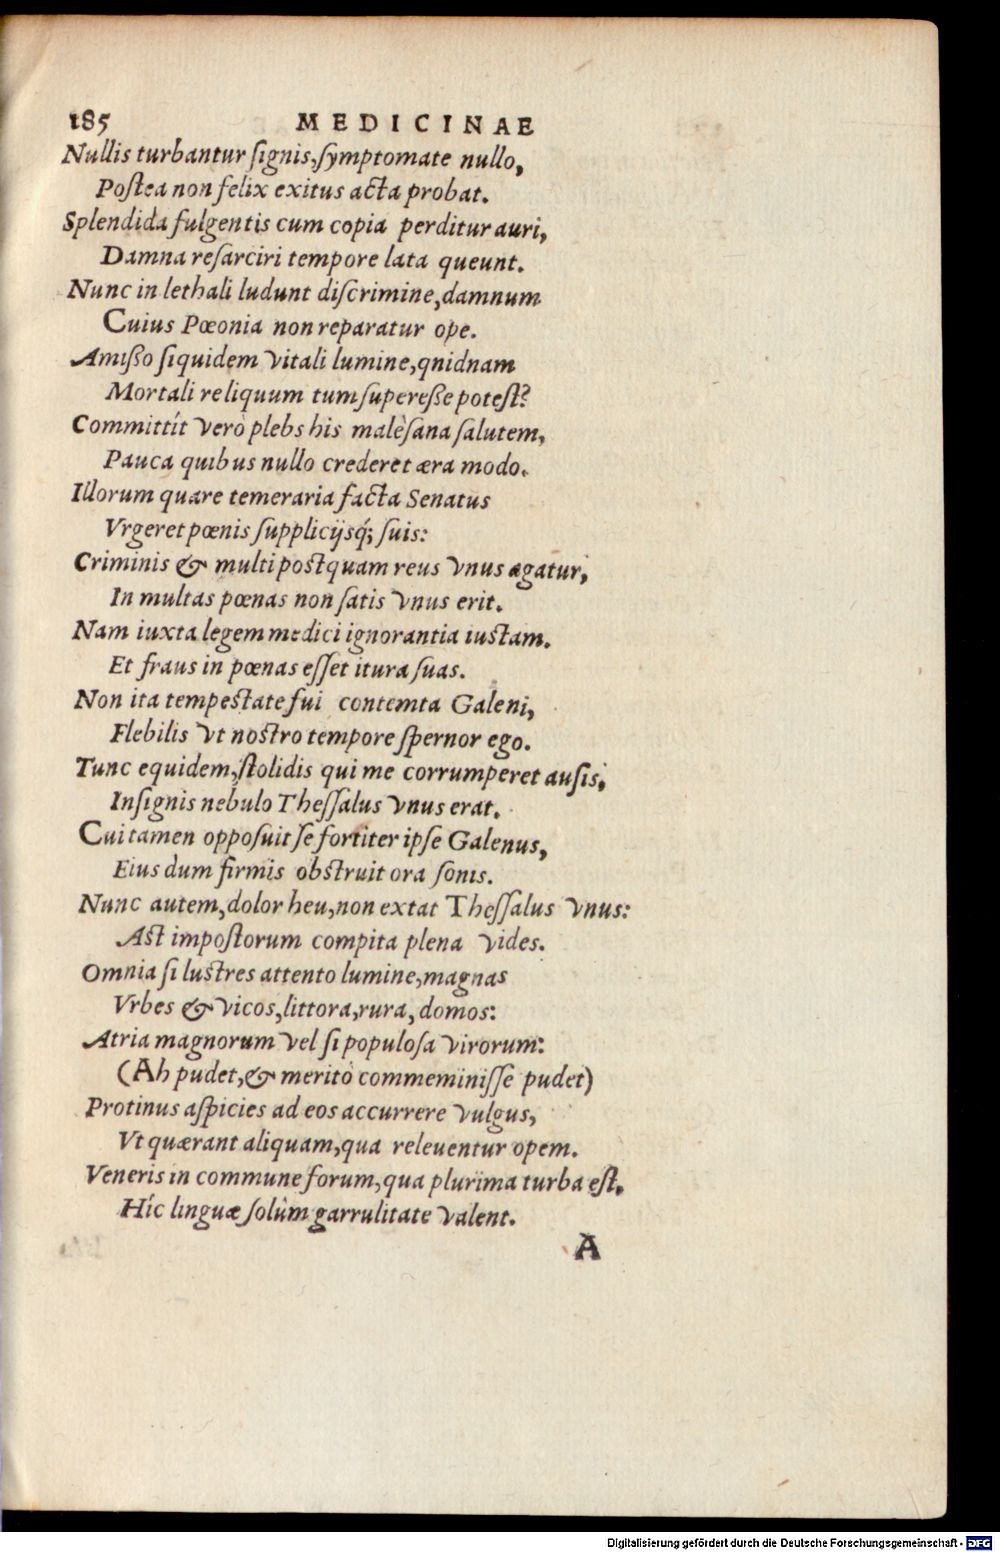 185 MEDICINAE
Nullis turbantur ſignis, ſymptomate nullo,
Poſtea non felix exitus acta probat.
Splendida fulgentis cum copia perditur auri,
Damna reſarciri tempore lata queunt.
Nunc in lethali ludunt diſcrimine, damnum
Cuius Pœonia non reparatur ope.
Amißo ſiquidem vitali lumine, qnidnam
Mortali reliquum tum ſupereße poteſt?
Committít verò plebs his malè ſana ſalutem,
Pauca quibus nullo crederet æra modo.
Illorum quare temeraria facta Senatus
Vrgeret pœnis ſupplicijsq́; ſuis:
Criminis & multi postquam reus vnus agatur,
In multas pœnas non ſatis vnus erit.
Nam iuxta legem medici ignorantia iustam.
Et fraus in pœnas eſſet itura ſuas.
Non ita tempestate fui contemta Galeni,
Flebilis vt nostro tempore ſpernor ego.
Tunc equidem, ſtolidis qui me corrumperet auſis,
Inſignis nebulo Theſſalus vnus erat.
Cui tamen oppoſuit ſe fortiter ipſe Galenus,
Eius dum firmis obstruit ora ſonis.
Nunc autem, dolor heu, non extat Theſſalus vnus:
Ast impoſtorum compita plena vides.
Omnia ſi lustres attento lumine, magnas
Vrbes & vicos, littora, rura, domos:
Atria magnorum vel ſi populoſa virorum:
(Ah pudet, & meritò commeminiſſe pudet)
Protinus aſpicies ad eos accurrere vulgus,
Vt quærant aliquam, qua releuentur opem.
Veneris in commune forum, qua plurima turba eſt,
Híc linguæ ſolùm garrulitate valent.
A
Digitalisierung gefördert durch die Deutsche Forschungsgemeinschaft - DFG